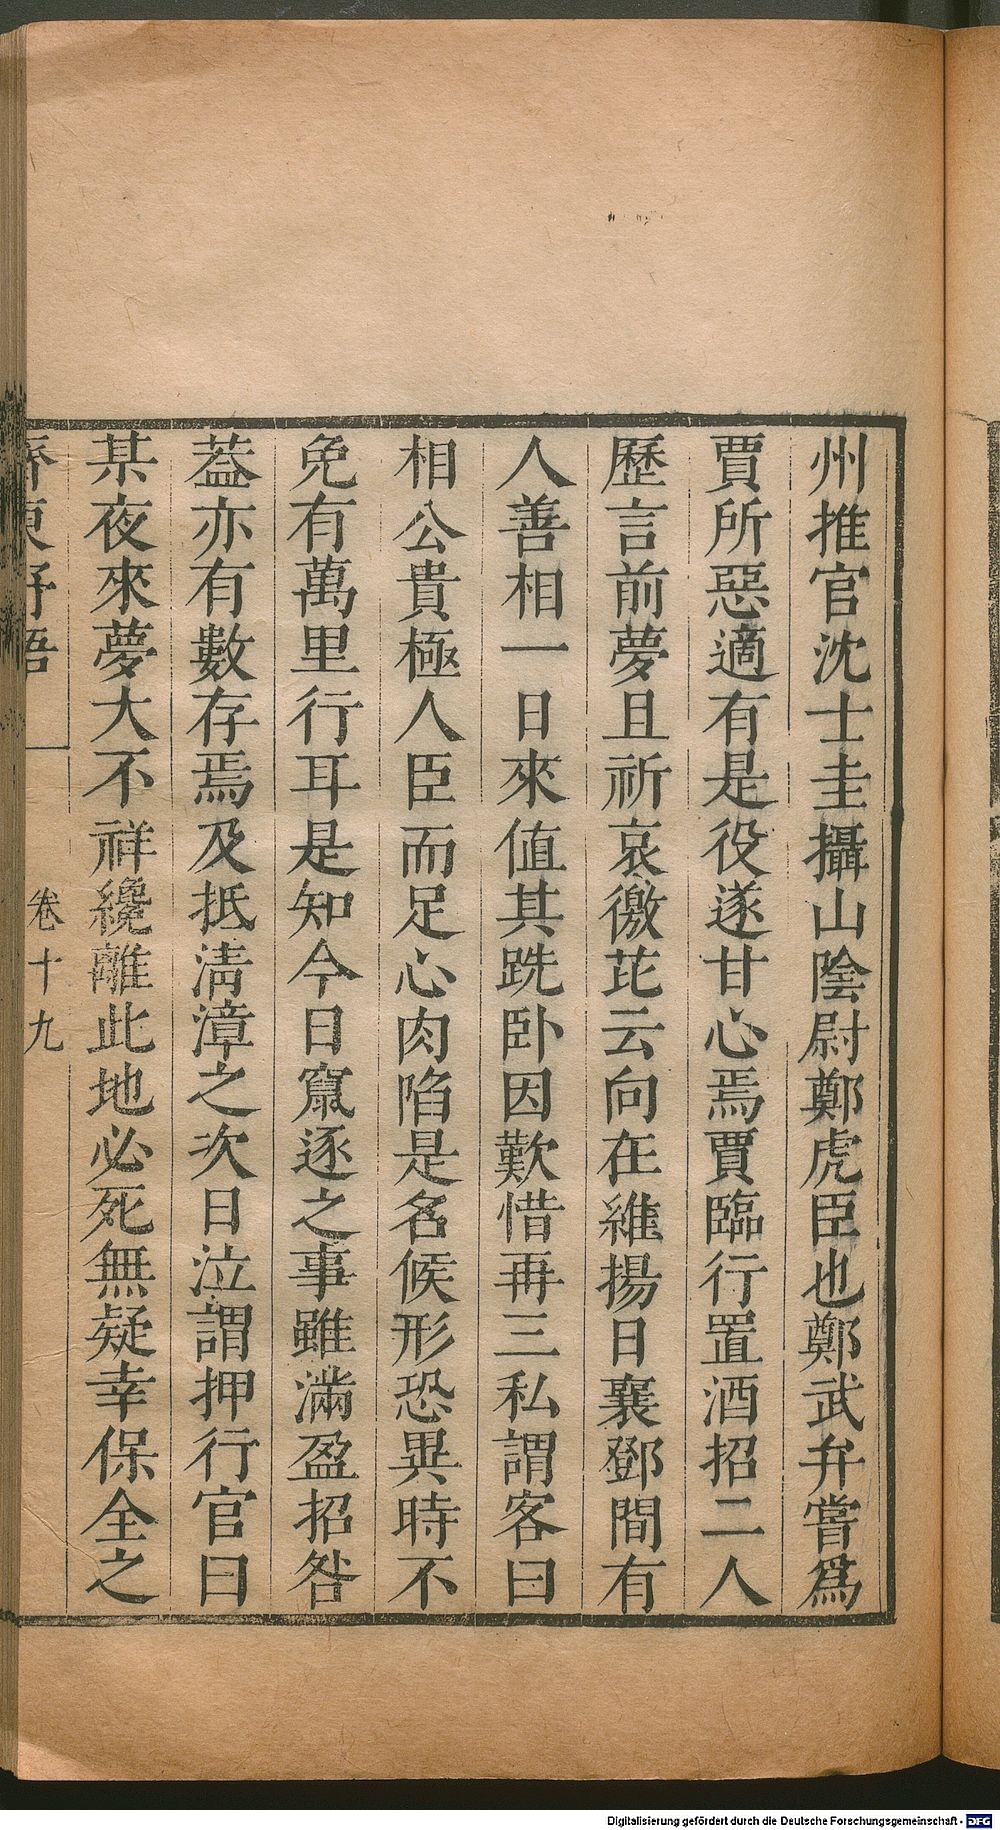 州推官沈士圭攝山陰尉鄭虎臣也鄭武弁嘗爲
賈所惡適有是役遂甘心焉賈臨行置酒招二人
歷言前夢且祈哀徼芘云向在維揚日襄鄧間有
人善相一日來值其跣卧因歎惜再三私謂客曰
相公貴極人臣而足心肉陷是名猴形恐異時不
免有萬里行耳是知今日竄逐之事雖滿盈招咎
葢亦有數存焉及抵淸漳之次日泣謂押行官曰
某夜來夢大不祥纔離此地必死無疑幸保全之
齊東野語
卷十九
Digitalisierung gefördert durch die Deutsche Forschungsgemeinschaft - DFG